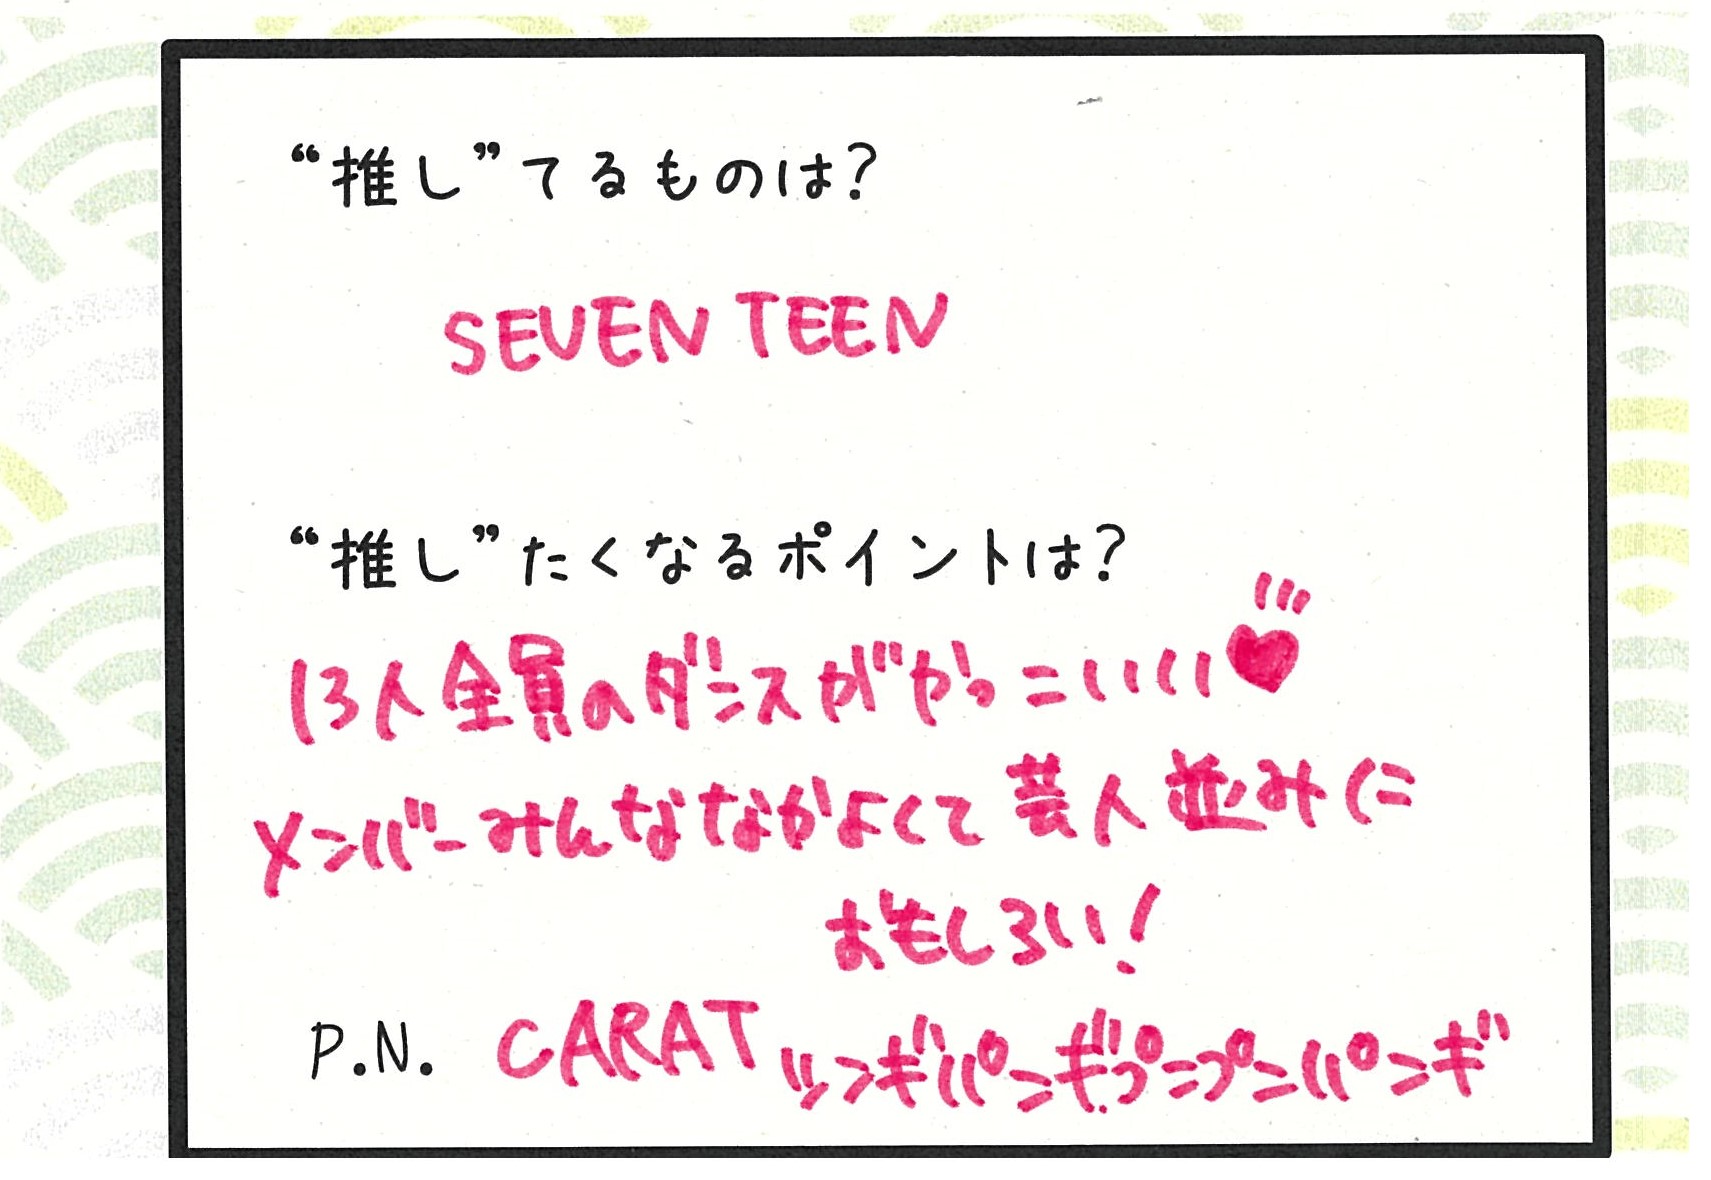 “推し”てるものは?
SEVENTEEN
“推し”たくなるポイントは?
13人全員のダンスがかっこいい
メンバーみんななかよくて芸人並みに
おもしろい!
P.N. CARAT